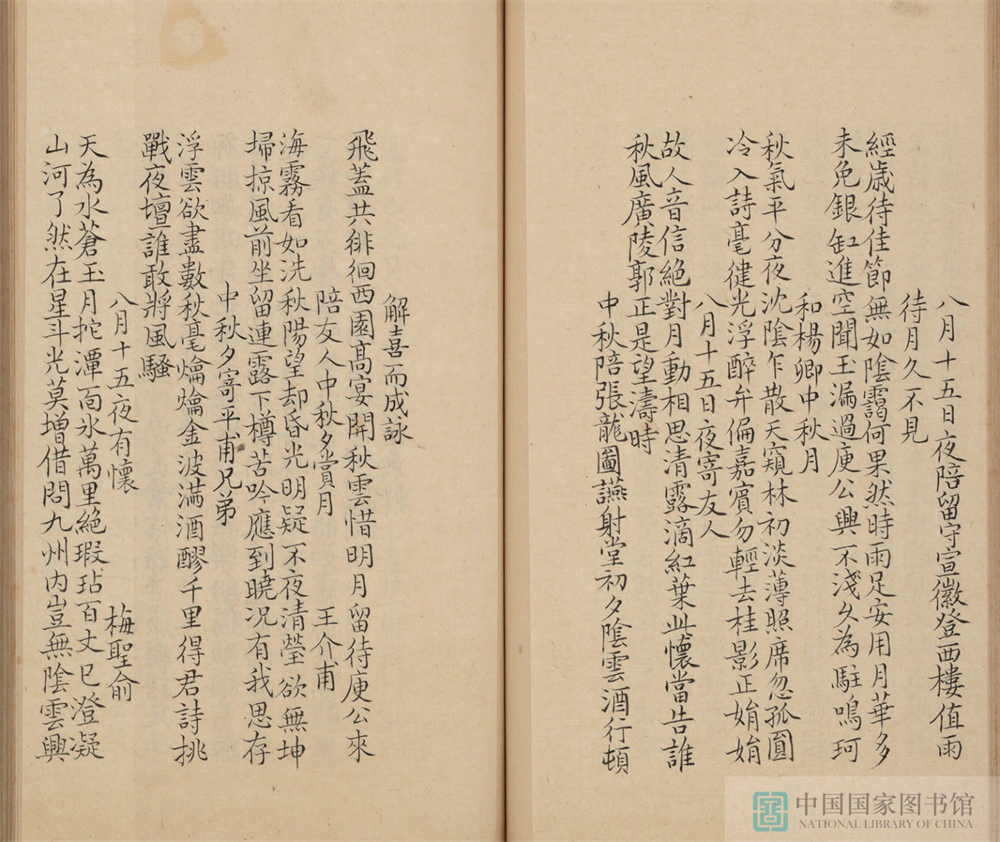 八月十五日夜陪留守宣徽登西樓值雨
待月久不見
經歳待佳節無如陰靄何果然時雨足安用月華多
未免銀缸進空聞王漏過庾公興不淺久為駐鳴珂
和楊卿中秋月
秋氣平分夜沈陰乍散天窺林初淡薄照席忽孤圓
冷入詩毫健光浮醉弁偏嘉賓勿輕去桂影正娟娟
八月十五日夜寄友人
故人音信絶對月動相思清露滴紅葉此懷當告誰
秋風廣陵郭正是望濤時
中秋陪張龍圖讌射堂初夕陰雲酒行頓
解喜而成詠
飛蓋共徘徊西園髙宴開秋雲惜明月留待庾公來
陪友人中秋夕賞月 王介甫
海霧看如洗秋陽望却昏光明疑不夜清瑩欲無坤
埽掠風前坐留連露下樽苦吟應到曉况有我思存
中秋夕寄平甫兄弟
浮雲欲盡數秋毫爚爚金波滿酒醪千里得君詩挑
戰夜壇誰敢將風騷
八月十五夜有懷 梅聖俞
天為水蒼玉月挓潭面氷萬里絶瑕玷百丈已澄凝
山河了然在星斗光莫增借問九州内豈無陰雲興
中国国家图书馆
NATIONAL LIBRARY OF CHINA